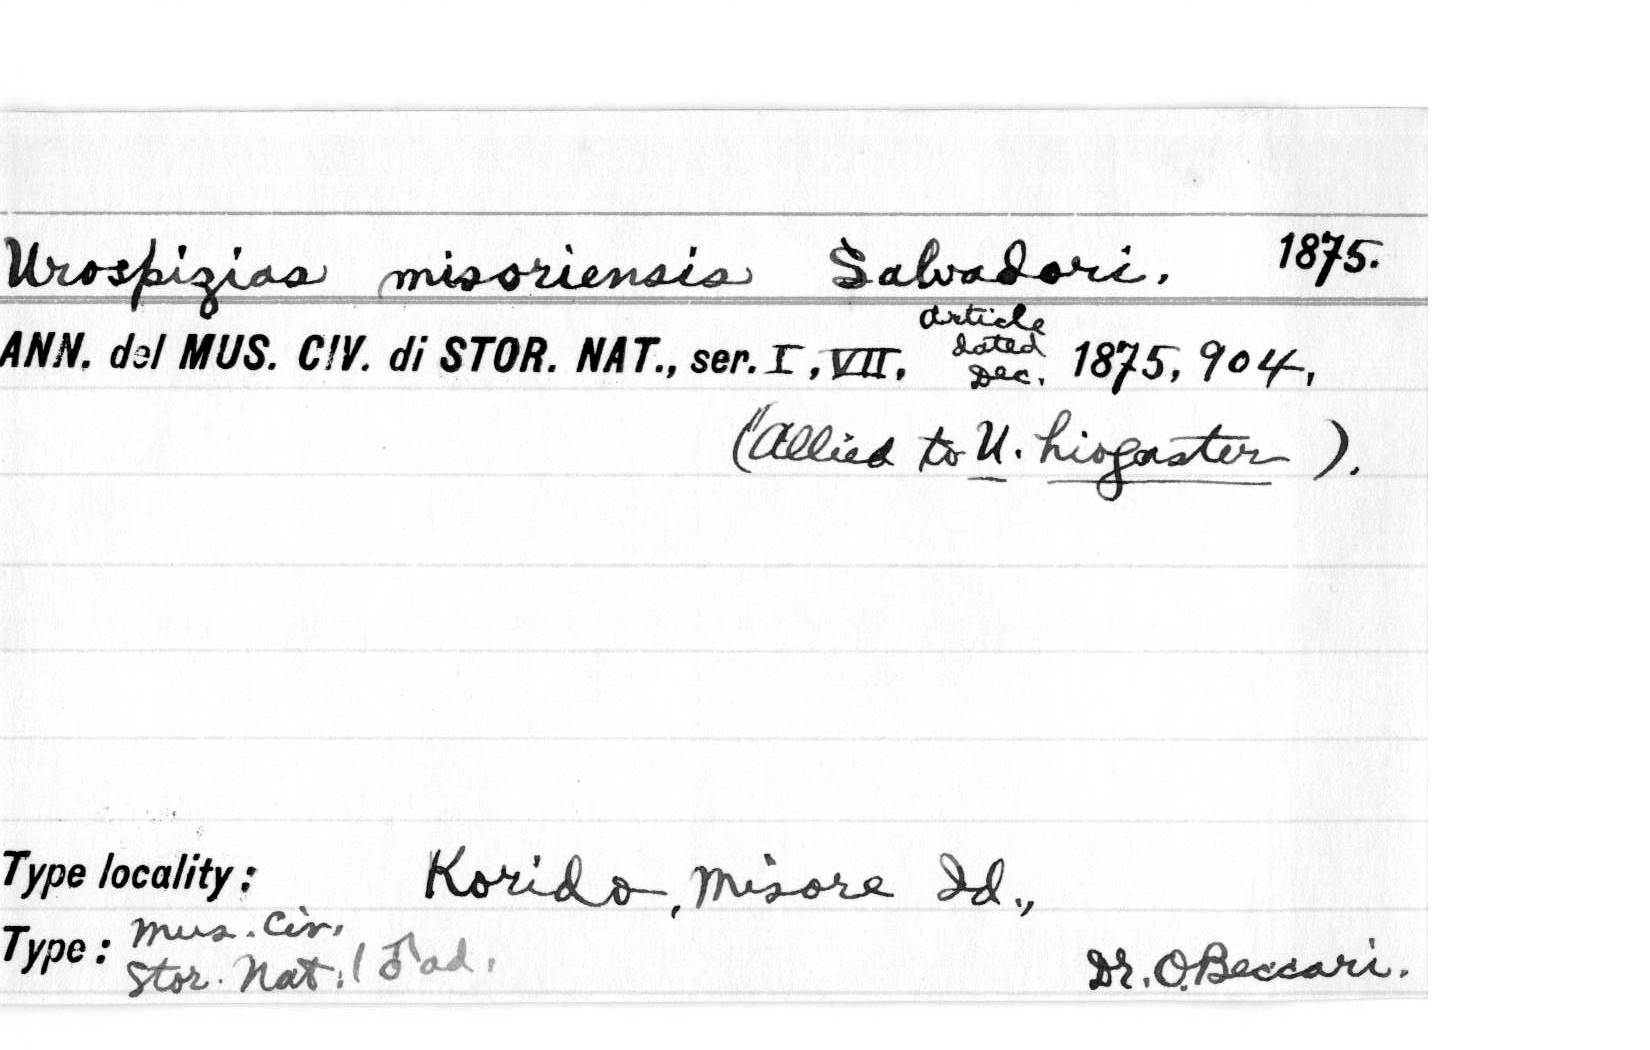 Urospizias misoriensis Salvadori. 1875.
ANN. del MUS. CIV. di STOR. NAT., ser. I, VII. article dated Dec. 1875, 904,
(allied to U. hiogaster).
Type locality: Korido, Misore Id.,
Type: Mus. Civ. Stor. Nat.! ♂ ad. Dr. O. Beccari.